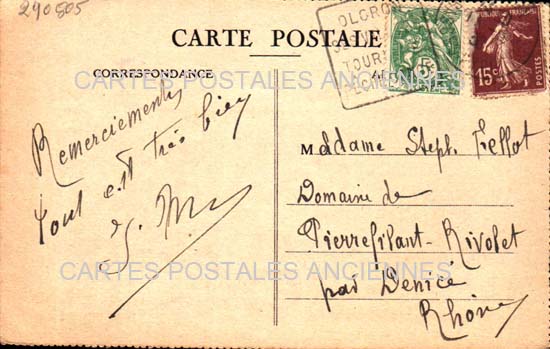 290505
CARTE POSTALE
OLORON
TOUR
5
RÉPUBLIQUE FRANÇAISE
15c
POSTES
CORRESPONDANCE
CARTES POSTALES ANCIENNES
Remerciements
Tout est très bien
Madame Steph. Fellot
Domaine de
Pierrefilant-Rivolet
CARTES POSTALES ANCIENNES
par Denicé
Rhône